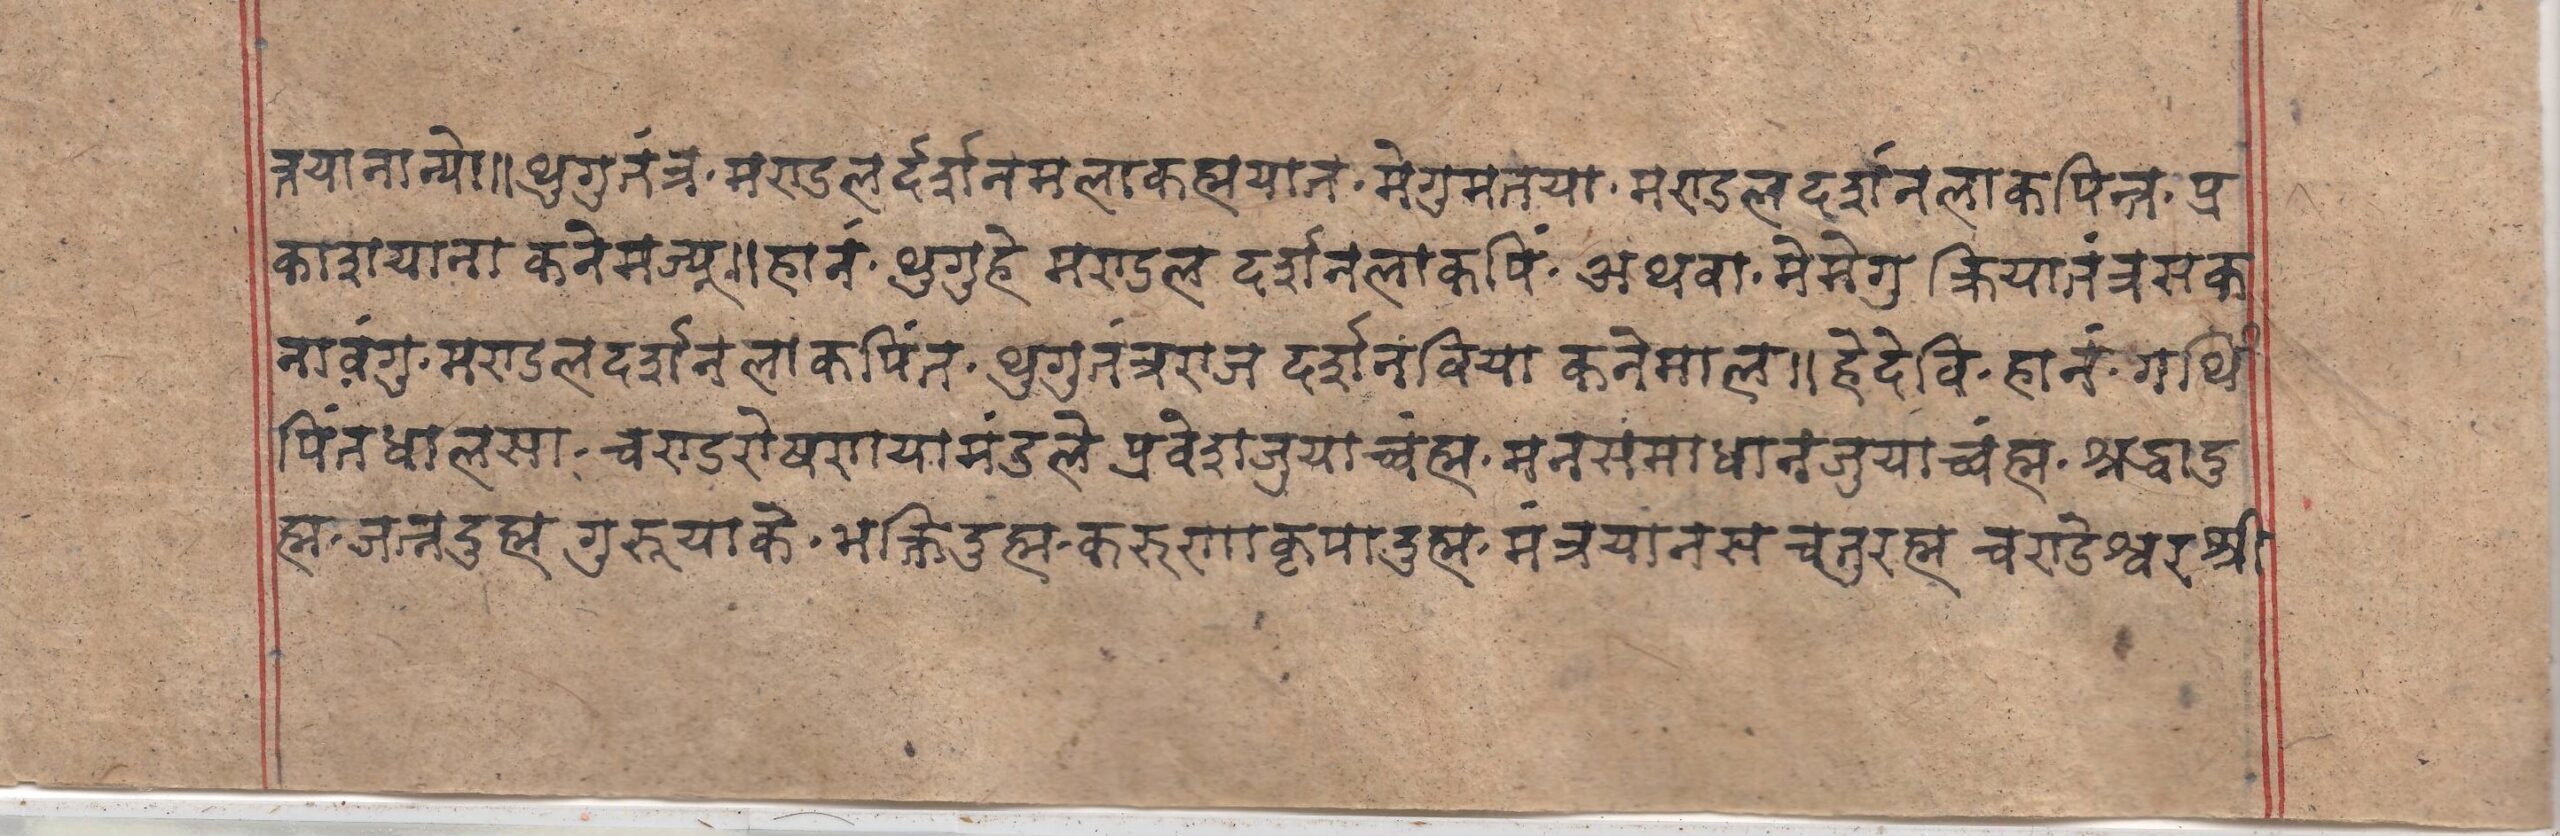 त्रयानान्यो॥थुगुतंत्र·मण्डलर्दर्शनमलाकह्मयात·मेगुमतया·मण्डलदर्शनलाकपिन्त·प्र
काशयाना कनेमज्यू॥हानं·थुगुहे मण्डल दर्शनलाकपिं·अथवा·मेमेगु क्रियातंत्रसक
नावंगु·मण्डलदर्शनलाकपिंत·थुगुतंत्रराज दर्शनंविया कनेमाल॥हेदेवि·हानं·गथिं
पिंतधालसा·चण्डरोषणयामंडले प्रवेशजुयाच्वंह्म·मनसंमाधानजुयाच्वंह्म·श्रद्धादु
ह्म·जत्नदुह्म गुरूयाके·भक्तिदुह्म·करुणाकृपादुह्म·मंत्रयानस चतुरह्म चण्डेश्वरश्री